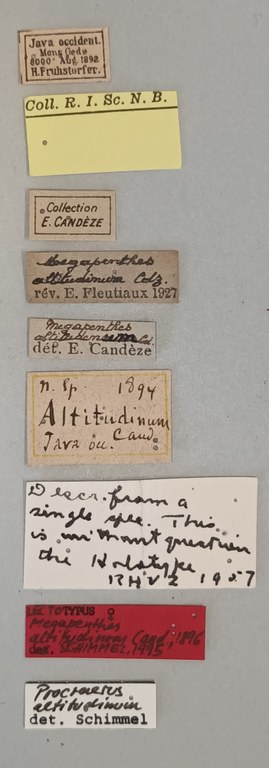 Java occident.
Mons Gede
8000' Aug. 1892
H. Fruhstorfer.
Coll. R. I. Sc. N. B.
Collection
E. CANDÈZE
Megapenthes
altitudinum Cdz.
rév. E. Fleutiaux 1927
Megapenthes
altitudinum Cd.
dét. E. Candèze
n. sp. 1894
Altitudinum
Java oc. Cand
Descr. from a
single spec. This
is without question
the Holotype
1957
LECTOTYPUS
Megapenthes
altitudinum Cand, 1896
det. SCHIMMEL, 1995
Procraerus
altitudinum
det. Schimmel